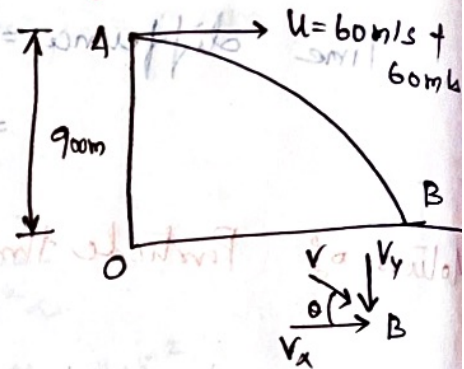 A
U = 60 m/s +
60 m/s
900m
B
O
V
Vy
θ
B
Vx